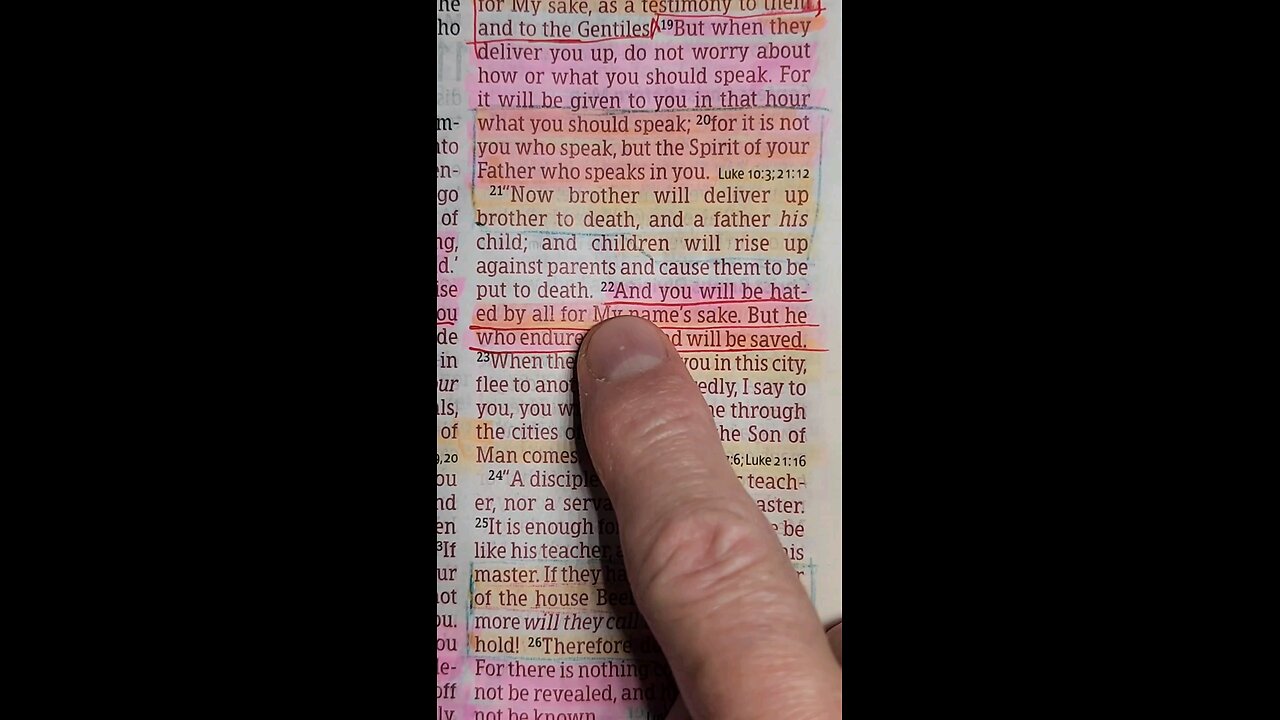 he
ho
m-
to
en-
go
of
ng,
d.'
ise
ou
de
in
ur
ls,
of
9,20
ou
nd
en
³If
ur
not
ou.
ou
le-
off
ly
for My sake, as a testimony to them
and to the Gentiles. ¹⁹But when they
deliver you up, do not worry about
how or what you should speak. For
it will be given to you in that hour
what you should speak; ²⁰for it is not
you who speak, but the Spirit of your
Father who speaks in you. Luke 10:3; 21:12
²¹“Now brother will deliver up
brother to death, and a father his
child; and children will rise up
against parents and cause them to be
put to death. ²²And you will be hat-
ed by all for My name's sake. But he
who endure d will be saved.
²³When the you in this city,
flee to ano edly, I say to
you, you w e through
the cities o he Son of
Man comes :6; Luke 21:16
²⁴“A disciple teach-
er, nor a serva aster.
²⁵It is enough fo e be
like his teacher, his
master. If they ha r
of the house Bee
more will they call
hold! ²⁶Therefore d
For there is nothing
not be revealed, and
not be known.